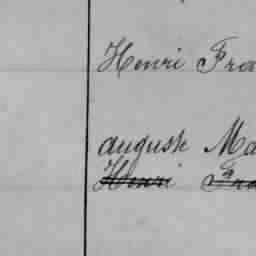 Henri Fra
auguste Ma
Henri Fra